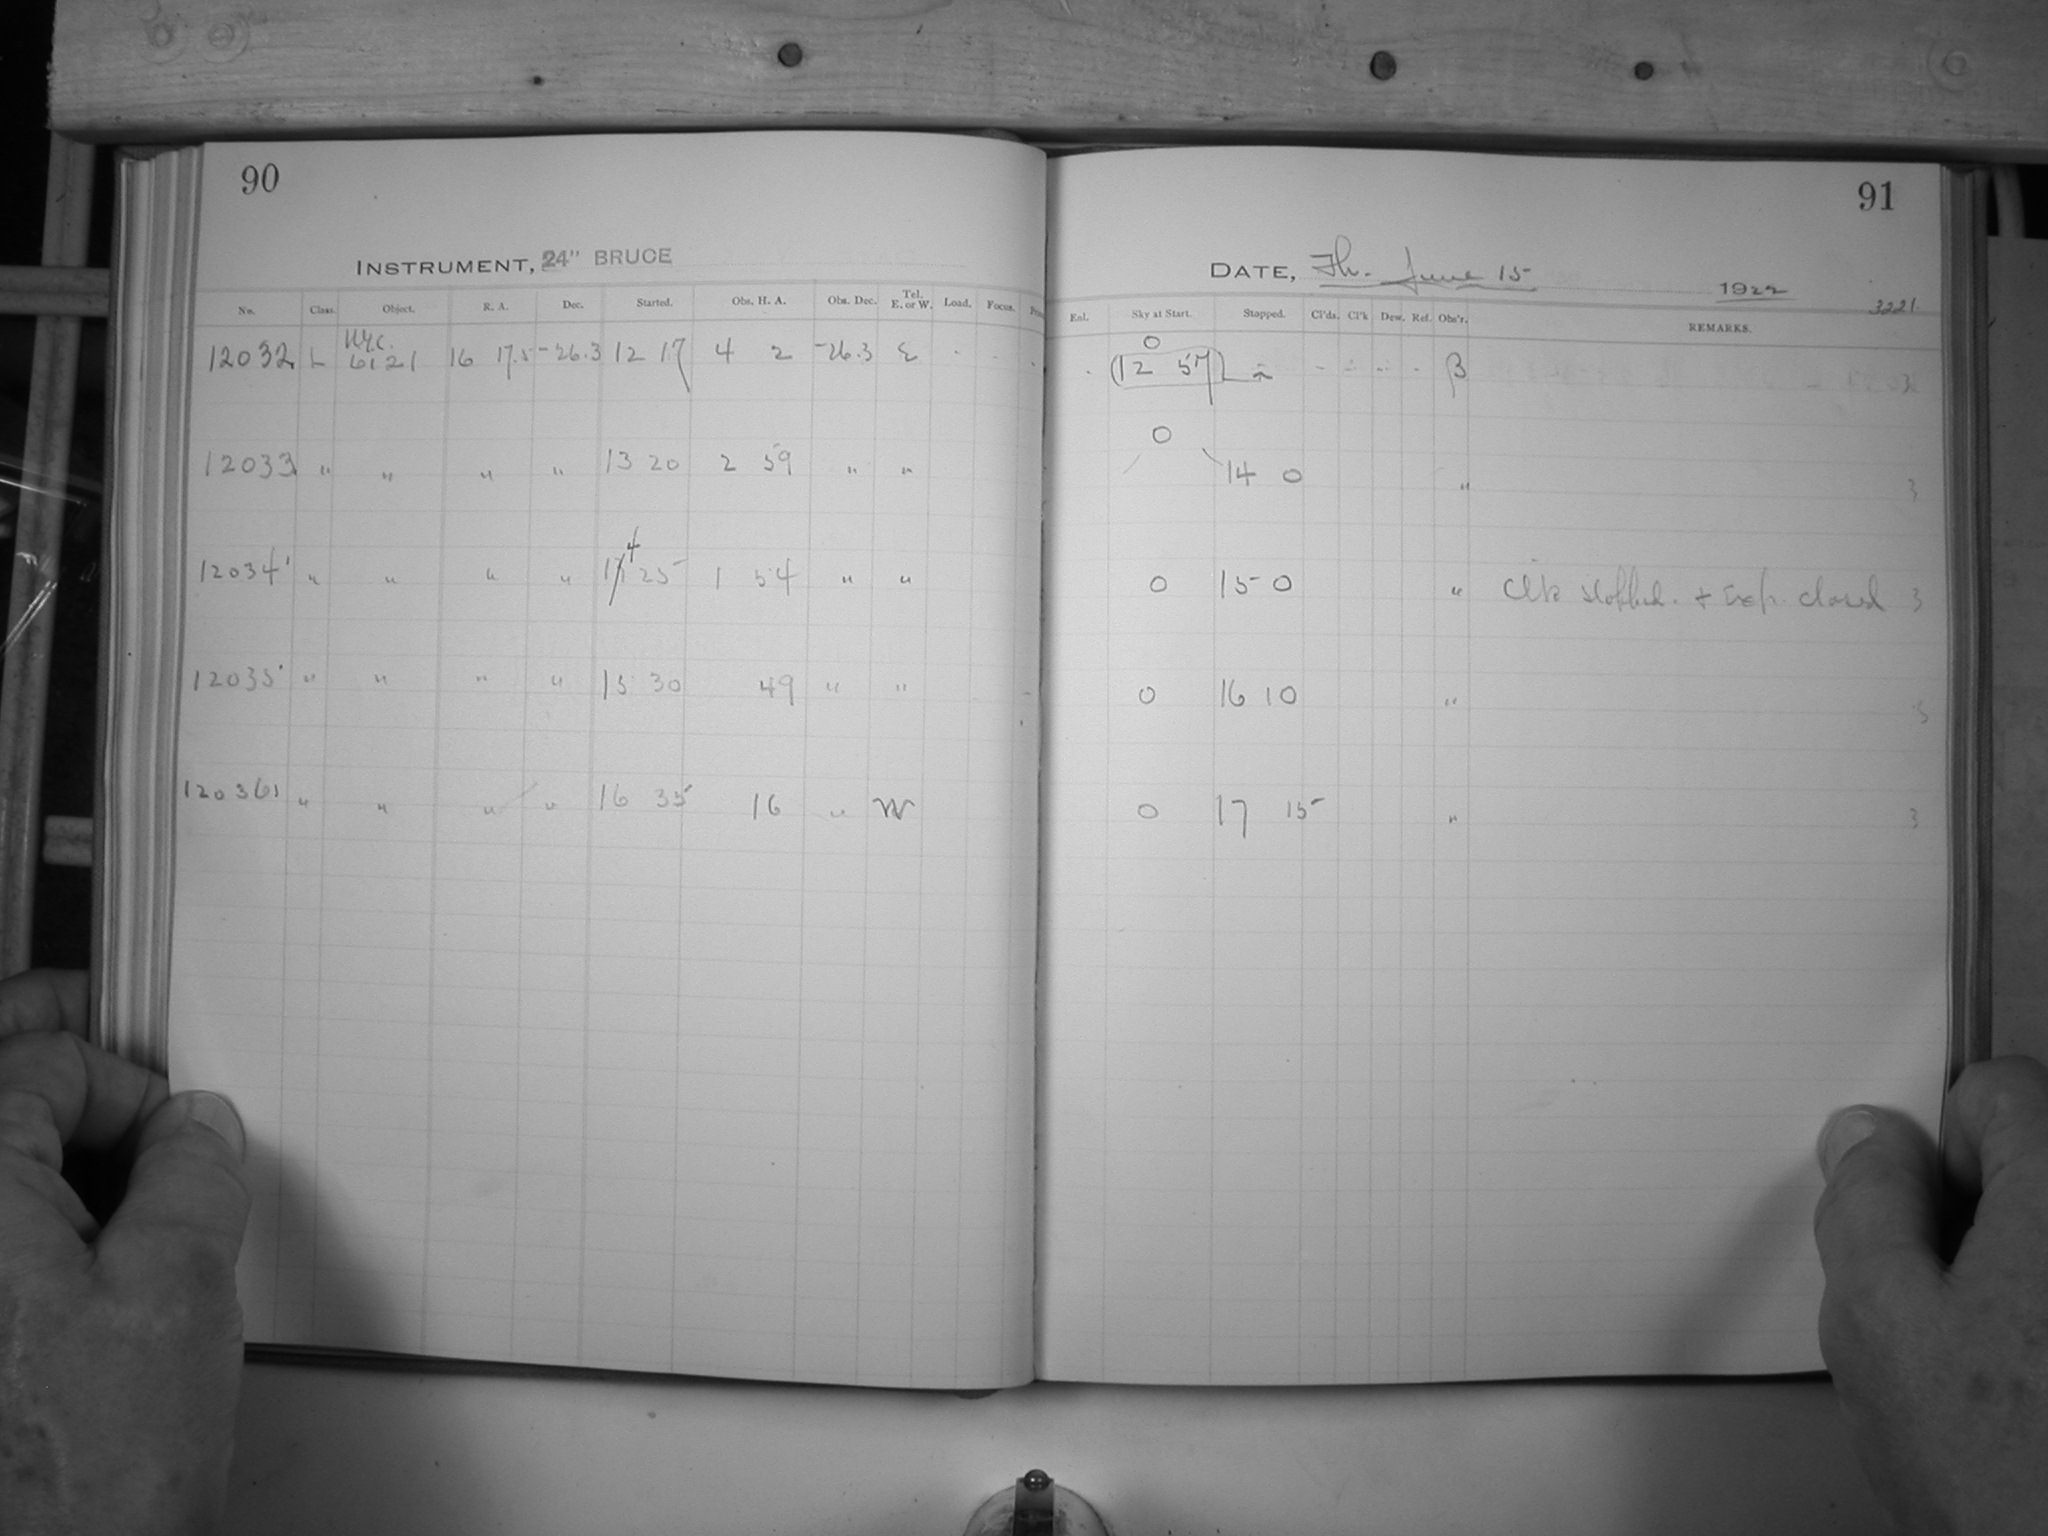 90
INSTRUMENT, 24" BRUCE
No. Class. Object. R. A. Dec. Started. Obs. H. A. Obs. Dec. Tel. E. or W. Load. Focus.
N.G.C.
12032 L 6121 16 17.5 -26.3 12 17 4 2 -26.3 E
12033 " " " " 13 20 2 59 " "
4
12034 " " " " 25 1 54 " "
12035 " " " " 15 30 49 " "
12036 " " " " 16 35 16 " W
91
DATE, Th. June 15 1922
3221
Enl. Sky at Start. Stopped. Cl'ds. Cl'k Dew. Ref. Obs'r. REMARKS.
0
(12 57) β 3
0
14 0 " 3
0 15 0 " Clk stopped. + Exp. closed 3
0 16 10 " 3
0 17 15 " 3